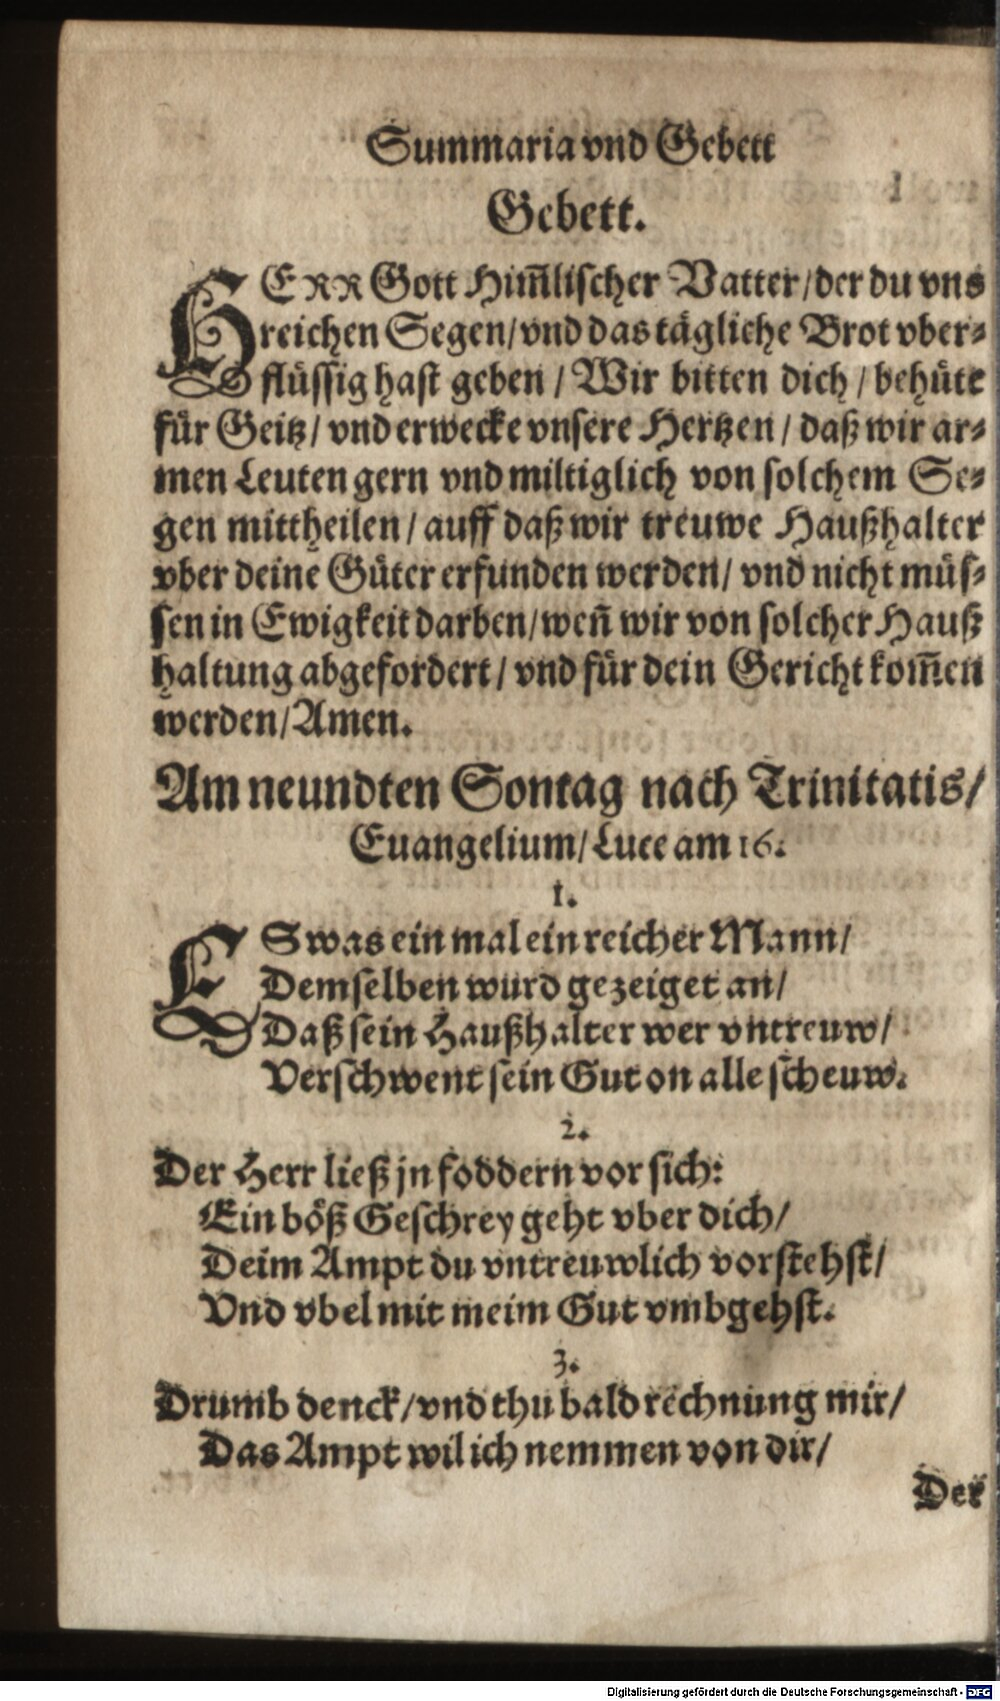 Summaria vnd Gebett
Gebett.
HERR Gott Him̃lischer Vatter/der du vns
reichen Segen/vnd das tägliche Brot vber-
flüssig hast geben / Wir bitten dich / behüte
für Geitz/ vnd erwecke vnsere Hertzen / daß wir ar-
men Leuten gern vnd miltiglich von solchem Se-
gen mittheilen / auff daß wir treuwe Haußhalter
vber deine Güter erfunden werden/ vnd nicht müs-
sen in Ewigkeit darben/weñ wir von solcher Hauß
haltung abgefordert / vnd für dein Gericht kom̃en
werden/Amen.
Am neundten Sontag nach Trinitatis/
Euangelium/ Luce am 16.
1.
ES was ein mal ein reicher Mann/
Demselben wurd gezeiget an/
Daß sein Haußhalter wer vntreuw/
Verschwent sein Gut on alle scheuw.
2.
Der Herr ließ jn foddern vor sich:
Ein böß Geschrey geht vber dich/
Deim Ampt du vntreuwlich vorstehst/
Vnd vbel mit meim Gut vmbgehst.
3.
Drumb denck/vnd thu bald rechnung mir/
Das Ampt wil ich nemmen von dir/
Der
Digitalisierung gefördert durch die Deutsche Forschungsgemeinschaft - DFG